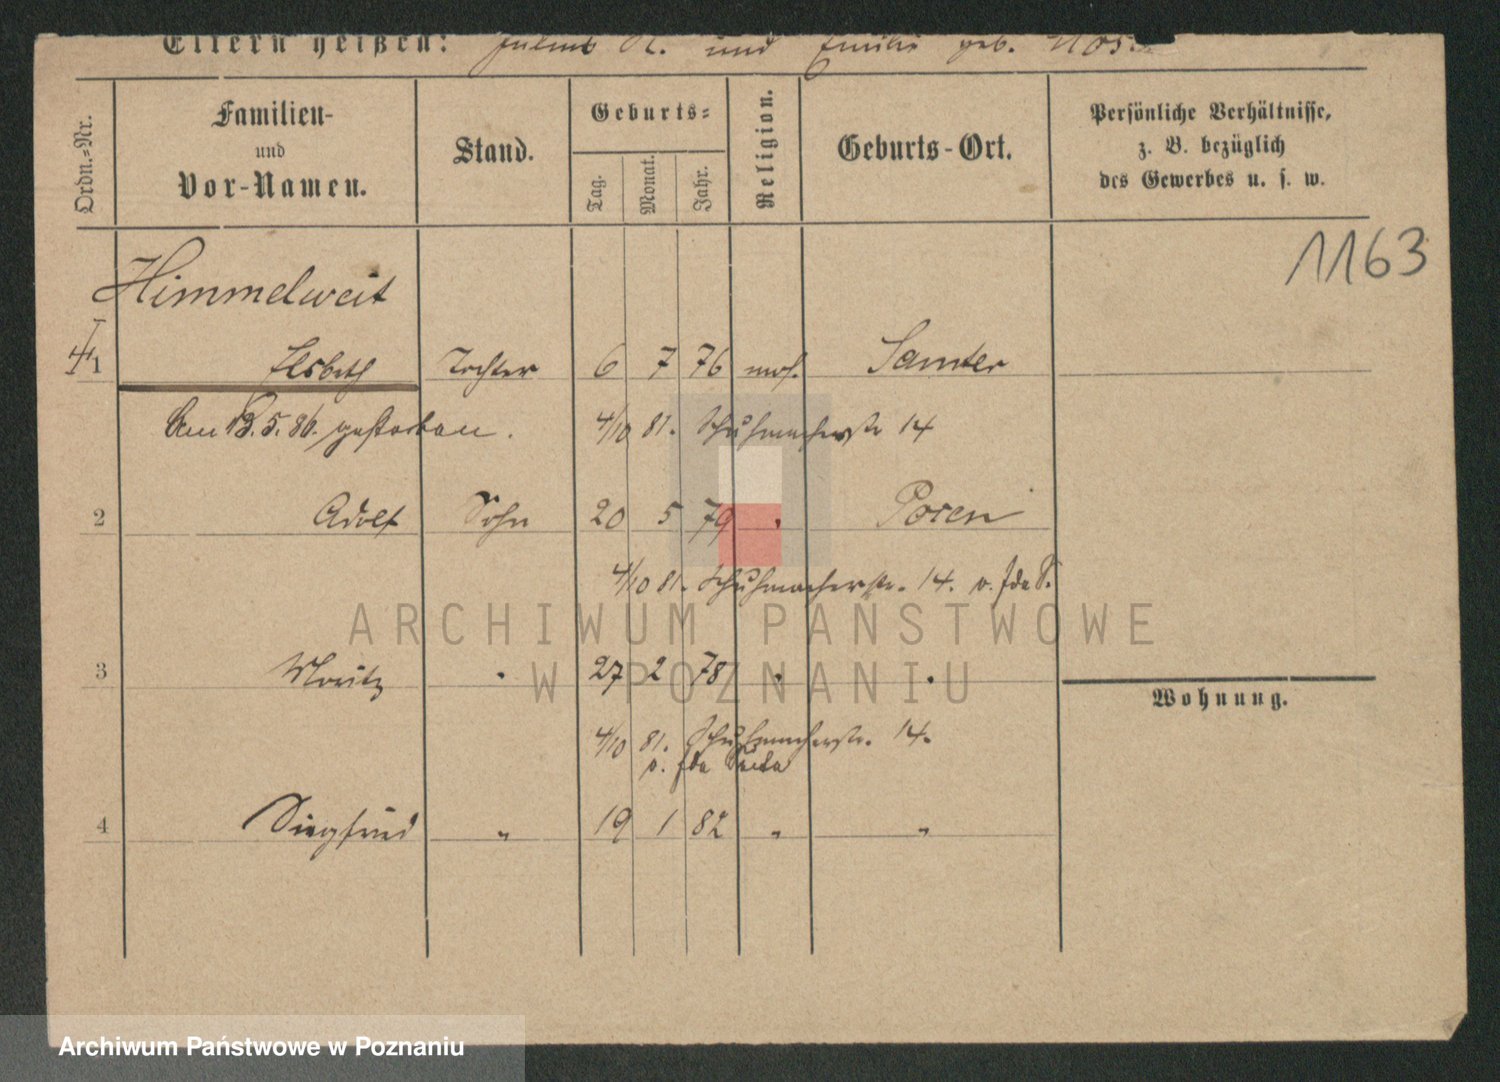 Eltern heißen: Julius H. und Emilie geb.
Ordn.-Nr.
Familien-
und
Vor-Namen.
Stand.
Geburts-
Tag.
Monat.
Jahr.
Religion.
Geburts-Ort.
Persönliche Verhältnisse,
z. B. bezüglich
des Gewerbes u. s. w.
1163
Himmelweit
1 Elsbeth Tochter 6 7 76 mos. Samter
Am 5. 86. gestorben. 4/10 81. Schuhmacherstr 14
2 Adolf Sohn 20 5 79 " Posen
4/10 81. Schuhmacherstr. 14.
ARCHIWUM PAŃSTWOWE
W POZNANIU
3 Moritz " 27 2 78 " "
Wohnung.
4/10 81. Schuhmacherstr. 14.
4 Siegfried " 19 1 82 " "
Archiwum Państwowe w Poznaniu